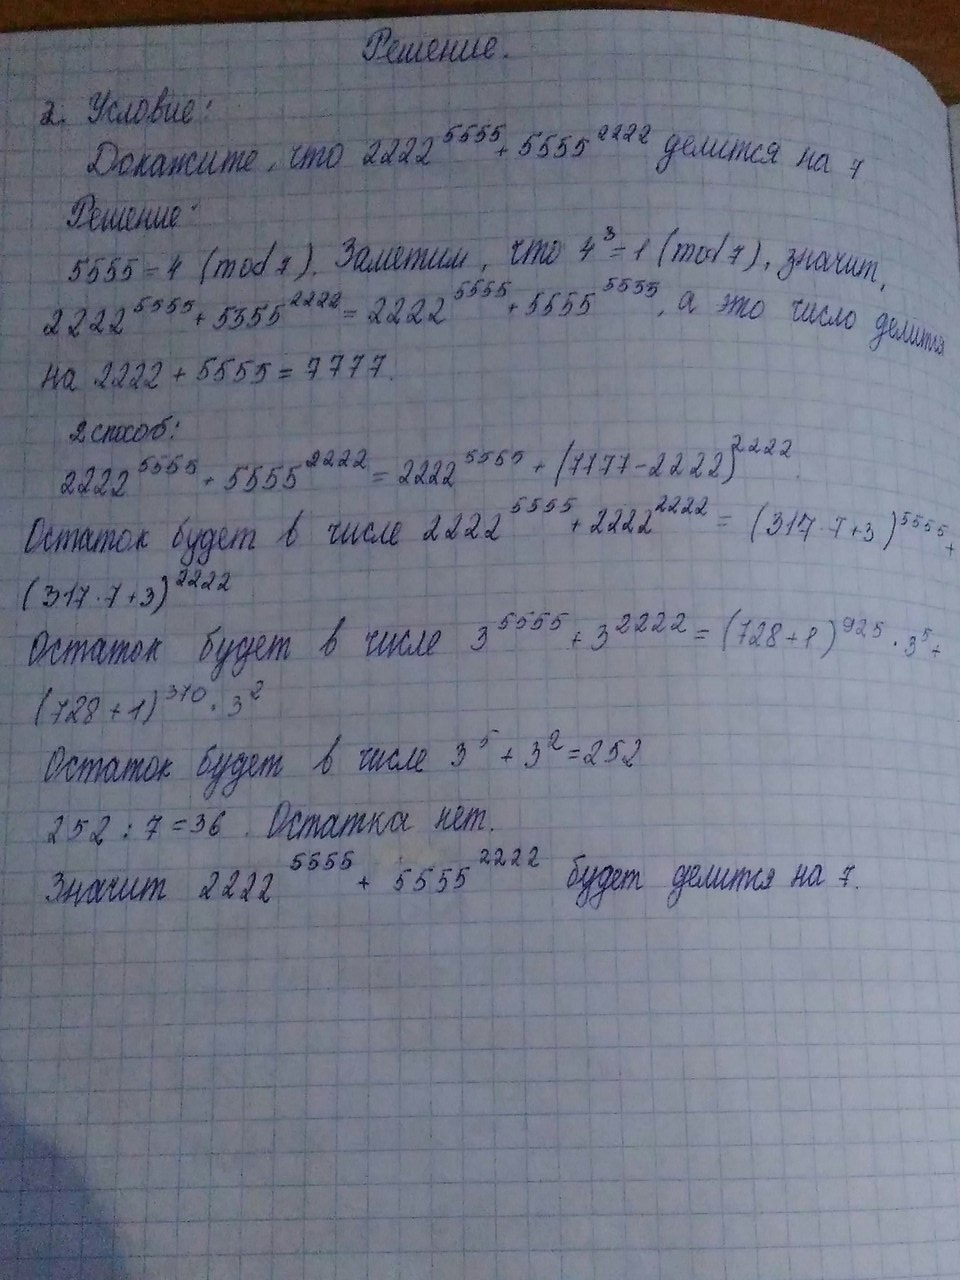 Решение.
2. Условие:
Докажите, что 2222^5555 + 5555^2222 делится на 7
Решение:
5555 = 4 (mod 7). Заметим, что 4^3 = 1 (mod 7), значит,
2222^5555 + 5355^2222 = 2222^5555 + 5555^5555, а это число делится
на 2222 + 5555 = 7777.
2 способ:
2222^5555 + 5555^2222 = 2222^5555 + (7777 - 2222)^2222.
Остаток будет в числе 2222^5555 + 2222^2222 = (317·7+3)^5555 +
(317·7+3)^2222
Остаток будет в числе 3^5555 + 3^2222 = (728+1)^925 · 3^5 +
(728+1)^370 · 3^2
Остаток будет в числе 3^5 + 3^2 = 252
252 : 7 = 36. Остатка нет.
Значит 2222^5555 + 5555^2222 будет делится на 7.